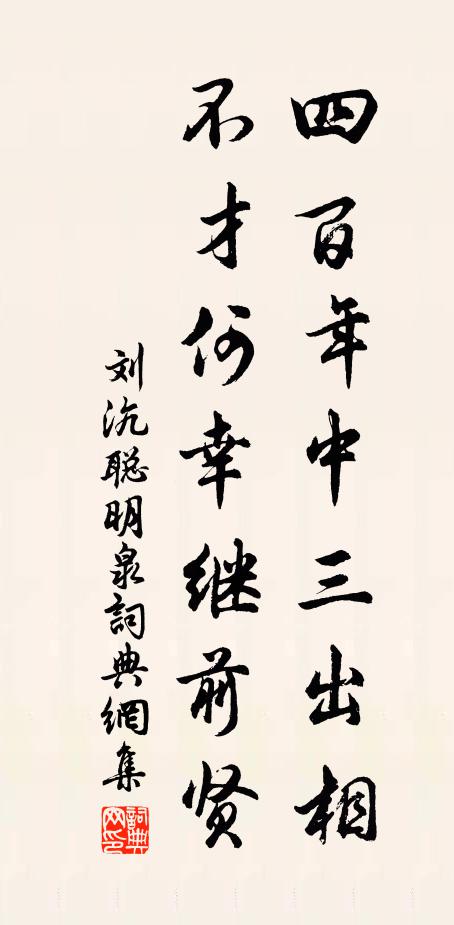 四百年中三出相
不才何幸继前贤
刘沆聪明泉詞典網集
詞典網印